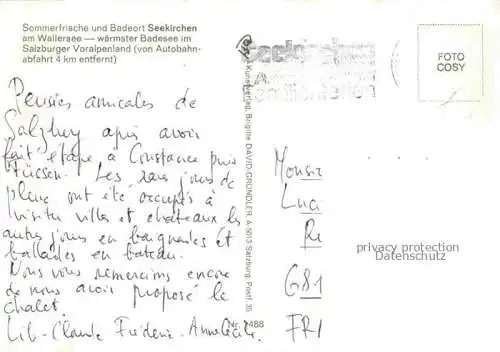 Sommerfrische und Badeort Seekirchen
am Wallersee — wärmster Badesee im
Salzburger Voralpenland (von Autobahn-
abfahrt 4 km entfernt)
Pensées amicales de
Salzburg après avoir
fait étape à Constance puis
Füssen. Les rares jours de
pluie ont été occupés à
visiter villes et chateaux les
autres jours en baignades et
ballades en bateau.
Nous vous remercions encore
de nous avoir proposé le
chalet.
Lili-Claude Frédéric-Anne Cécile.
Kunstverlag, Brigitte DAVID-GRÜNDLER, A-5013 Salzburg, Postf. 35
Nr. 1488
Seekirchen
FOTO
COSY
Monsieu
Luc
R
681
FRA
privacy protection
Datenschutz